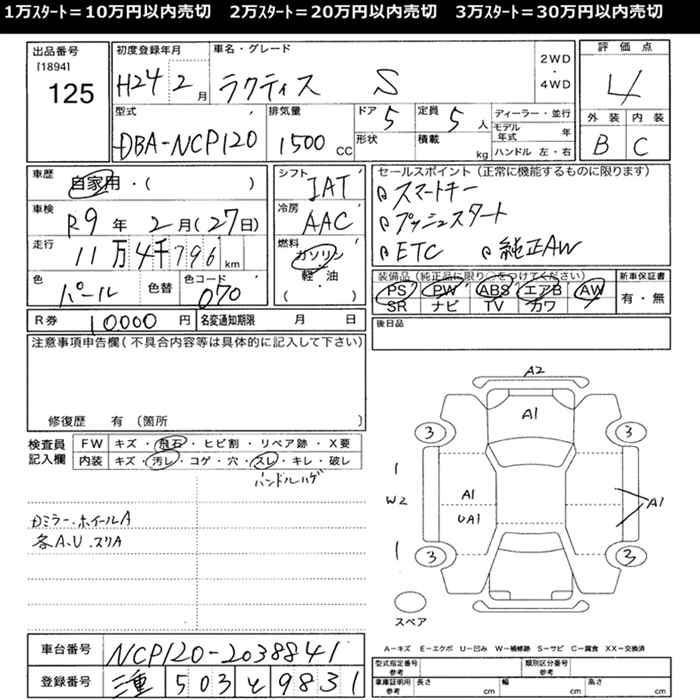 1万スタート＝10万円以内売切　2万スタート＝20万円以内売切　3万スタート＝30万円以内売切
出品番号
[1894]
125
初度登録年月
H24 2月
車名・グレード
ラクティス S
2WD
・
4WD
評価点
4
外装 内装
B C
型式
DBA-NCP120
排気量
1500 CC
ドア 5
形状
定員 5 人
積載 kg
ディーラー・並行
モデル年式 年
ハンドル 左・右
車歴
自家用・( )
車検
R9年 2月(27日)
走行
11万4千796km
色
パール
色替
色コード
070
シフト
IAT
冷房
AAC
燃料
ガソリン
軽・油
( )
セールスポイント(正常に機能するものに限ります)
スマートキー
プッシュスタート
ETC 純正AW
装備品(純正品に限り○をつけてください)
PS PW ABS エアB AW
SR ナビ TV カワ
新車保証書
有・無
R券 10000円
名変通知期限 月 日
後日品
注意事項申告欄(不具合内容等は具体的に記入して下さい)
修復歴 有(箇所 )
検査員
記入欄
FW キズ・飛石・ヒビ割・リペア跡・X要
内装 キズ・汚レ・コゲ・穴・スレ・キレ・破レ
ハンドルハゲ
ミラー・ホイールA
各A・U・スリA
A2
A1
3 3
1
W2
1
A1
UA1
A1
3 3
スペア
A－キズ E－エクボ U－凹み W－補修跡 S－サビ C－腐食 XX－交換済
車台番号
NCP120-2038841
登録番号
三重 503 と 9831
型式指定番号
参考
類別区分番号
参考
車庫証明用
参考
長さ cm 幅 cm 高さ cm